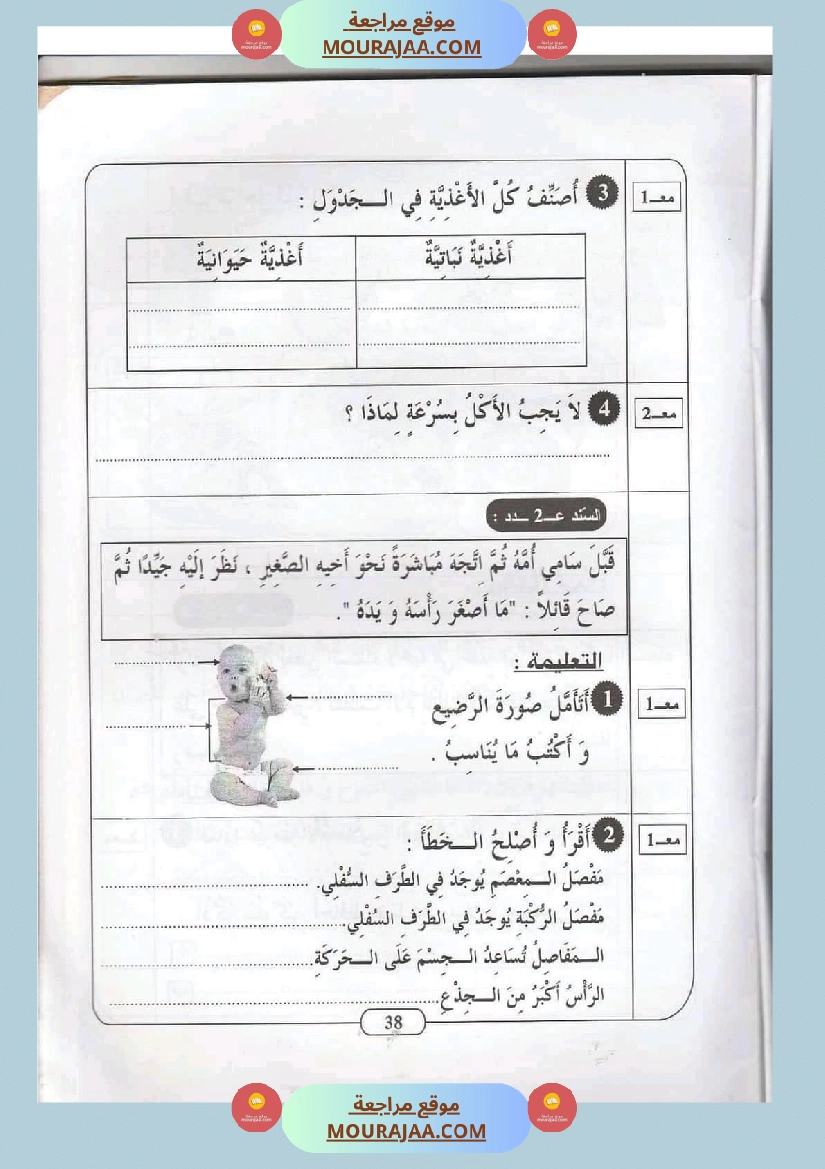 موقع مراجعة
MOURAJAA.COM
معـ1
3 أُصَنِّفُ كُلَّ الأَغْذِيَّةِ فِي الـــجَدْوَلِ :
أَغْذِيَّةٌ نَبَاتِيَّةٌ
أَغْذِيَّةٌ حَيَوَانِيَةٌ
معـ2
4 لاَ يَجِبُ الأَكْلُ بِسُرْعَةٍ لِمَاذَا ؟
السّند عـــ2 ـــدد :
قَبَّلَ سَامِي أُمَّهُ ثُمَّ اِتَّجَهَ مُبَاشَرَةً نَحْوَ أَخِيهِ الصَّغِيرِ ، نَظَرَ إلَيْهِ جَيِّدًا ثُمَّ
صَاحَ قَائِلاً : "مَا أَصْغَرَ رَأْسَهُ وَ يَدَهُ ".
التعليمة :
معـ1
1 أَتَأَمَّلُ صُورَةَ الرَّضِيع
وَ أَكْتُبُ مَا يُنَاسِبُ .
معـ1
2 أَقْرَأُ وَ أُصْلِحُ الـــخَطَأَ :
مَفْصَلُ الـــمِعْصَمِ يُوجَدُ فِي الطَّرَفِ السُّفْلِي.
مَفْصَلُ الرُّكْبَةِ يُوجَدُ فِي الطَّرَفِ السُّفْلِي
الـــمَفَاصِلُ تُسَاعِدُ الـــجِسْمَ عَلَى الـــحَرَكَةِ
الرَّأْسُ أَكْبَرُ مِنَ الـــجِذْعِ
38
موقع مراجعة
MOURAJAA.COM